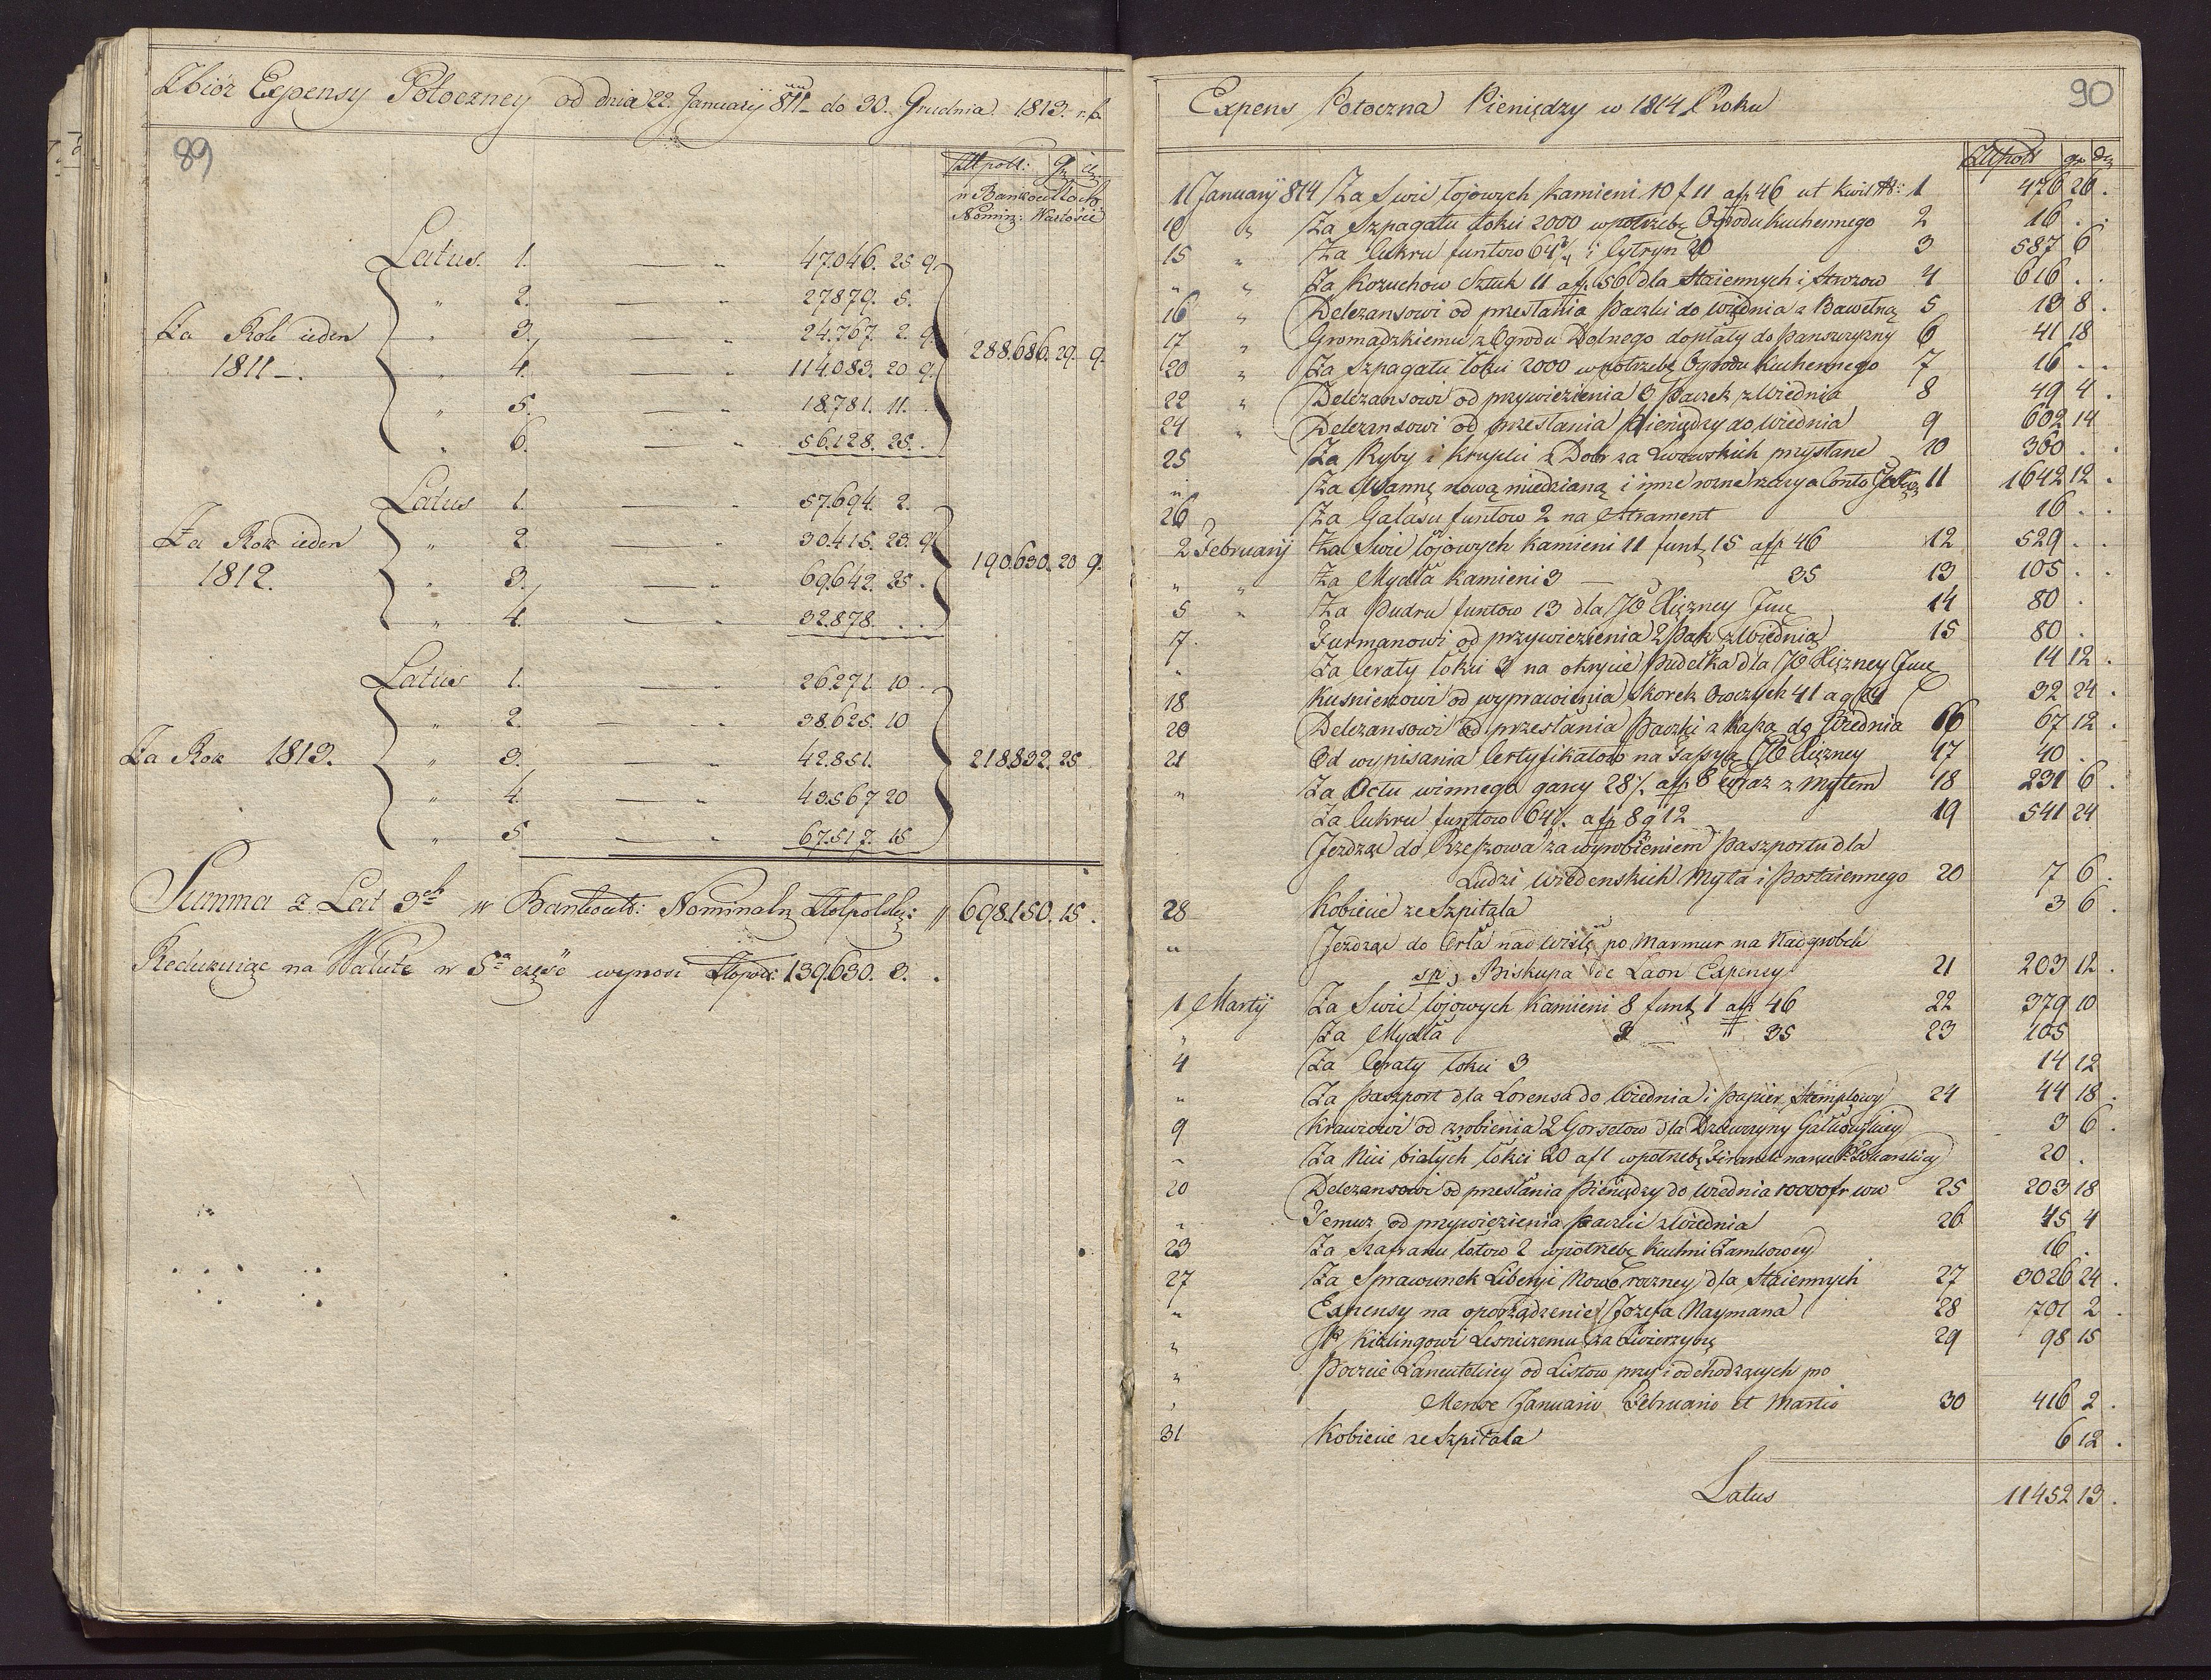 Zbiór Expensy Potoczney od dnia 22. January 811 do 30. Grudnia 1813. r. b.
89
Złł poll: gr dz
w Bankocetlach
Nomin: Wartości
Latus. 1. — " 47.046. 25 9.
" 2. — " 27879. 5.
" 3. — " 24.767. 2. 9
Za Rok ieden 1811 — . 288.686. 29. 9.
" 4. — " 114.083. 20 9.
" 5. — " 18.781. 11. .
" 6. — " 56.128. 25. .
Latus 1. — " 57.694. 2. .
Za Rok ieden " 2. — " 30.415. 23. 9
1812. 190.630. 20 9.
" 3. — " 69.642. 25 .
" 4. — " 32.878. . .
Latus 1. — " 26.271. 10 .
" 2. — " 38.625. 10
Za Rok 1813. " 3. — " 42.851. 218.832. 25
" 4. — " 43.567 20
" 5 — " 67.517. 15
Summa z Lat 3ch w Bankoctl: Nominaln Złotpolskz: " 698.150. 15 .
Redukuiąc na Walutę w 5tą część wynosi Złotpol: 139.630. 3. .
90
Expens Potoczna Pieniędzy w 1814 Roku
Złłpoll gr dz
11 January 814 Za Swic łojowych kamieni 10 f 11 afp 46 ut kwit No: 1 476 26 .
10 " Za Szpagatu łokci 2000 w potrzebę Ogrodu kuchennego 2 16 . .
15 " Za Cukru funtow 64 2/4 i Cytryn 20 3 587 6
" " Za Kożuchow Sztuk 11 afp. 56 dla Staiennych i Strozow 4 616 . .
16 " Deleżansowi od przesłania Paczki do Wiednia z Bawełną 5 13 8 .
17 " Gromadzkiemu z Ogrodu Dolnego dopłaty do Panszczyzny 6 41 18
20 " Za Szpagatu łokci 2000 w potrzebę Ogrodu Kuchennego 7 16 . .
22 " Deleżansowi od przywiezienia 3 Paczek z Wiednia 8 49 4 .
24 " Deleżansowi od przesłania Pieniędzy do Wiednia 9 602 14
25 Za Ryby i Krupki z Dobr za Lwowskich przysłane 10 360 . .
" Za Wannę nową miedzianą i inne rożne rzeczy a Conto 11 1642 12 .
26 Za Gałasu funtow 2 na Atrament 16 . .
2 February Za Swic łojowych kamieni 11 funt 15 afp 46 12 529 . .
" " Za Mydła kamieni 3 — 35 13 105 . .
5 " Za Pudru funtow 13 dla JO Xiężney Jmć 14 80 .
7. Furmanowi od przywiezienia 2 Pak z Wiednia 15 80 .
" Za Ceraty łokci 3 na okrycie Pudełka dla JO Xiężney Jmć 14 12 .
18 Kusnierzowi od wyprawienia Skorek Owczych 41 a g 24 32 24 .
20 Deleżansowi od przesłania Paczki z Kapą do Wiednia 16 67 12 .
21 Od wypisania Certyfikatow na JO Xiężney 17 40
" Za Octu winnego garcy 28 1/. afp. 8 wraz z Mytem 18 231 6 .
Za Cukru funtow 64 1/. afp 8 g 12 19 541 24
Jeżdząc do Rzeszowa za wyrobieniem Paszportu dla
Ludzi Wiedenskich Myta i Postaiennego 20 7 6 .
28 Kobiecie ze Szpitala 3 6 .
" Jeżdząc do Orła nad Wisłę po Marmur na Nadgrobek
sp, Biskupa de Laon Expensy 21 203 12 .
1 Martij Za Swic łojowych kamieni 8 funt 1 afp 46 22 379 10
" Za Mydła 3 — " 35 23 105
4 Za Ceraty łokci 3 14 12
" Za Paszport dla Lorensa do Wiednia i Papier Stemplowy 24 44 18 .
9 Krawcowi od zrobienia 2 Gorsetow dla Dziewczyny 3 6 .
" Za Nici białych łokci 20 af1 w potrzebę Firanek 20 .
20 Deleżansowi od przesłania Pieniędzy do Wiednia 10000 fr ww 25 203 18
" Temuz od przywiezienia paczki z Wiednia 26 45 4
23 Za Szafranu łotow 2 w potrzebę kuchni Zamkowey 16 .
27 Za Sprawunek Liberji Noworoczney dla Staiennych 27 3026 24 .
" Expensy na oporządzenie Jozefa Naymana 28 701 2 .
" JP Kislingowi Lesniczemu za Zwierzynę 29 98 15
" Poczcie Łancutskiey od Listow przy i odchodzących pro
" Mense Januario, Februario et Martio 30 416 2 .
31 Kobiecie ze Szpitala 6 12 .
Latus 11452 13 .